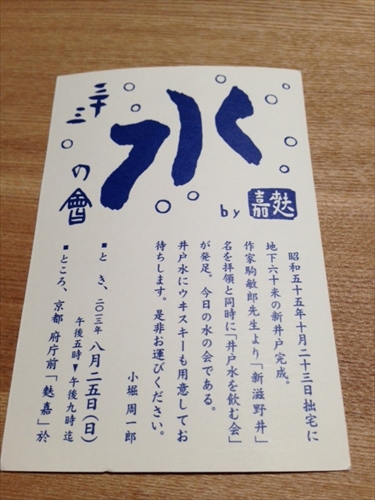 水
三十三
の會
by 嘉麩
昭和五十五年十月二十三日拙宅に
地下六十米の新井戸完成。
作家駒敏郎先生より「新滋野井」
名を拝領と同時に「井戸水を飲む会」
が発足。今日の水の会である。
井戸水にウヰスキーも用意してお
待ちします。是非お運びください。
小堀 周一郎
■と き、二〇一三年 八月二五日（日）
午後五時▼午後九時迄
■ところ、京都 府庁前「麩嘉」於